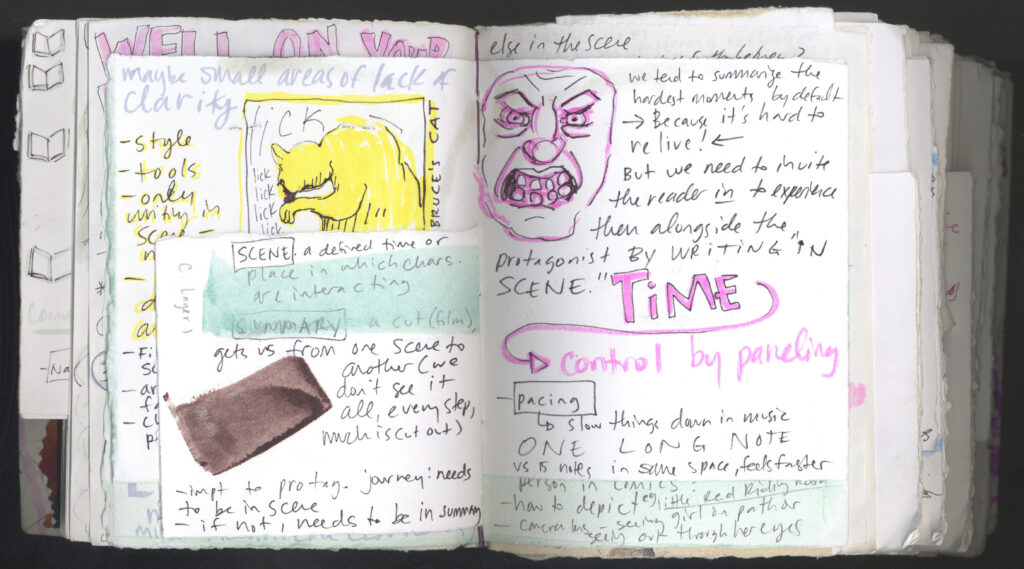 WELL ON YOUR
maybe small areas of lack of
clarity
LICK
lick
lick
lick
lick
BRUCE'S CAT
- style
- tools
- only
writing in
scene -
SCENE a defined time or
place in which chars.
are interacting
SUMMARY a cut (film),
gets us from one scene to
another (we
don't see it
all, every step,
much is cut out)
- impt to protag. journey: needs
to be in scene
- if not, needs to be in summary
else in the scene
we tend to summarize the
hardest moments by default
→ Because it's hard to
re live! ←
But we need to invite
the reader in to experience
then alongside the
protagonist BY WRITING "IN
SCENE."
TIME
control by paneling
- pacing
slow things down in music
ONE LONG NOTE
vs 15 notes in same space, feels faster
person in comics
- how to depict eg little Red Riding Hood
- camera lens - seeing girl on path or
seeing out though her eyes